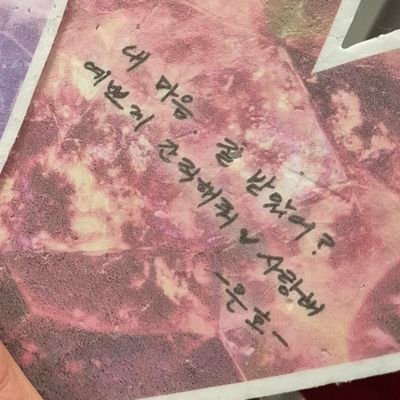 내 마음 잘 받았어?
예쁘게 간직해줘 ♥ 사랑해
-은호-